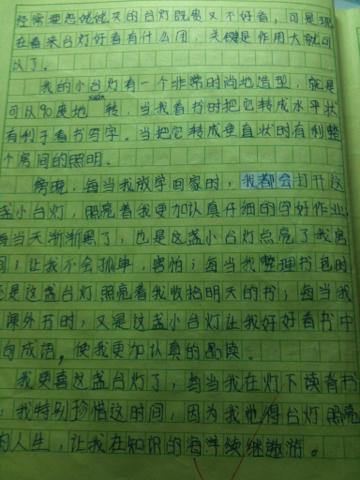 经常要想姥姥天的台灯既亮又不好看,可是现
在看来台灯好看有什么用,关键是作用大就可
以了。
我的小台灯有一个非常时尚地造型,就是
可以90度地 转,当我看书时把它转成水平状
有利于看书写字。当把它转成垂直状时有利整
个房间的照明。
傍晚,每当我放学回家时,我都会打开这
盏小台灯,照亮着我更加认真仔细的学好作业;
每当天渐渐黑了,也是这盏小台灯点亮了我房
间,让我不会孤单,害怕;每当我整理书包时
还是这盏台灯照亮着我收拾明天的书;每当我
课外书时,又是这盏小台灯让我好好看书中
句成语,使我更加认真的品读。
我更喜这盏台灯了,每当我在灯下读着书
,我特别珍惜这时间,因为我觉得台灯照亮
的人生,让我在知识的海洋续继遨游。